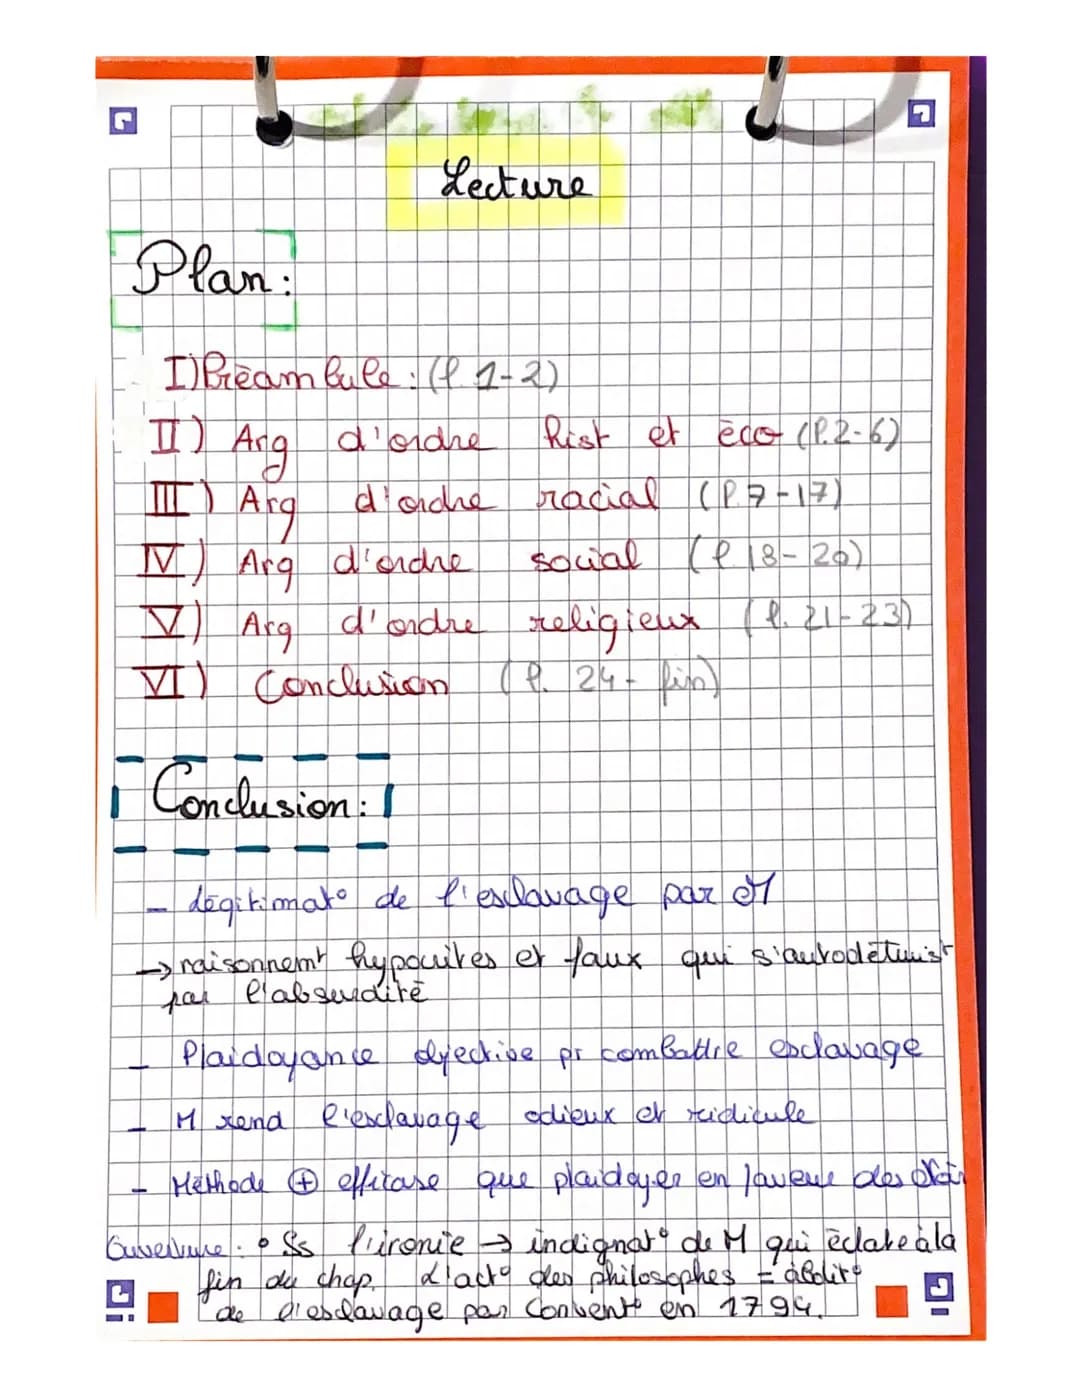 Lecture
Plan:
I) Préambule: (l. 1-2)
II) Arg d'ordre hist et éco (l. 2-6)
III) Arg d'ordre racial (l. 7-17)
IV) Arg d'ordre social (l. 18-20)
V) Arg d'ordre religieux (l. 21-23)
VI) Conclusion (l. 24- fin)
Conclusion:
- légitimat° de l'esclavage par M
→ raisonnemt hypocrites et faux qui s'autodétruist
par l'absurdité
- Plaidoyance objective pr combattre esclavage
- M rend l'esclavage odieux et ridicule
- Méthode ⊕ efficase que plaidoyer en faveur des
Ouverture: • Ss l'ironie → indignat° de M qui éclate à la
fin du chap. L'act° des philosophes = abolit°
de l'esclavage par Convent° en 1794.